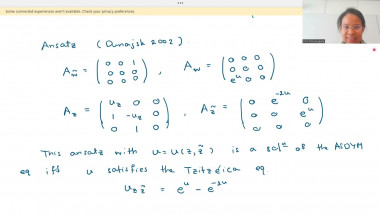 Some connected experiences aren't available. Check your privacy preferences
Ansatz (Dunajski 2002).
A_w̃ = ( 0 0 1 / 0 0 0 / 0 0 0 ) , A_w = ( 0 0 0 / 0 0 0 / e^u 0 0 )
A_z = ( u_z 0 0 / 1 -u_z 0 / 0 1 0 ) , A_z̃ = ( 0 e^{-2u} 0 / 0 0 e^u / 0 0 0 )
This ansatz with u = u(z, z̃) is a solⁿ of the ASDYM
eq iff u satisfies the Tzitzéica eq.
u_{z z̃} = e^u - e^{-2u}